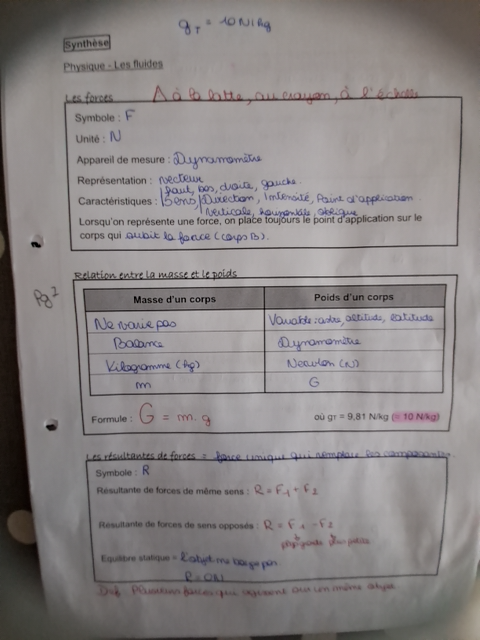 gT = 10 N/kg
Synthèse
Physique - Les fluides
Les forces
⚠ à la latte, au crayon, à l'échelle
Symbole : F
Unité : N
Appareil de mesure : Dynamomètre
Représentation : vecteur
haut, bas, droite, gauche.
Caractéristiques : Sens, Direction, Intensité, Point d'application
verticale, horizontale, oblique
Lorsqu'on représente une force, on place toujours le point d'application sur le
corps qui subit la force (corps B).
Relation entre la masse et le poids
Pg²
Masse d'un corps Poids d'un corps
Ne varie pas Variable : astre, altitude, latitude
Balance Dynamomètre
Kilogramme (kg) Newton (N)
m G
Formule : G = m.g où gT = 9,81 N/kg (= 10 N/kg)
Les résultantes de forces = force unique qui remplace les composantes
Symbole : R
Résultante de forces de même sens : R = F1 + F2
Résultante de forces de sens opposés : R = F1 - F2
plus grande plus petite
Equilibre statique = L'objet ne bouge pas
R = 0N
Def : Plusieurs forces qui agissent sur un même objet